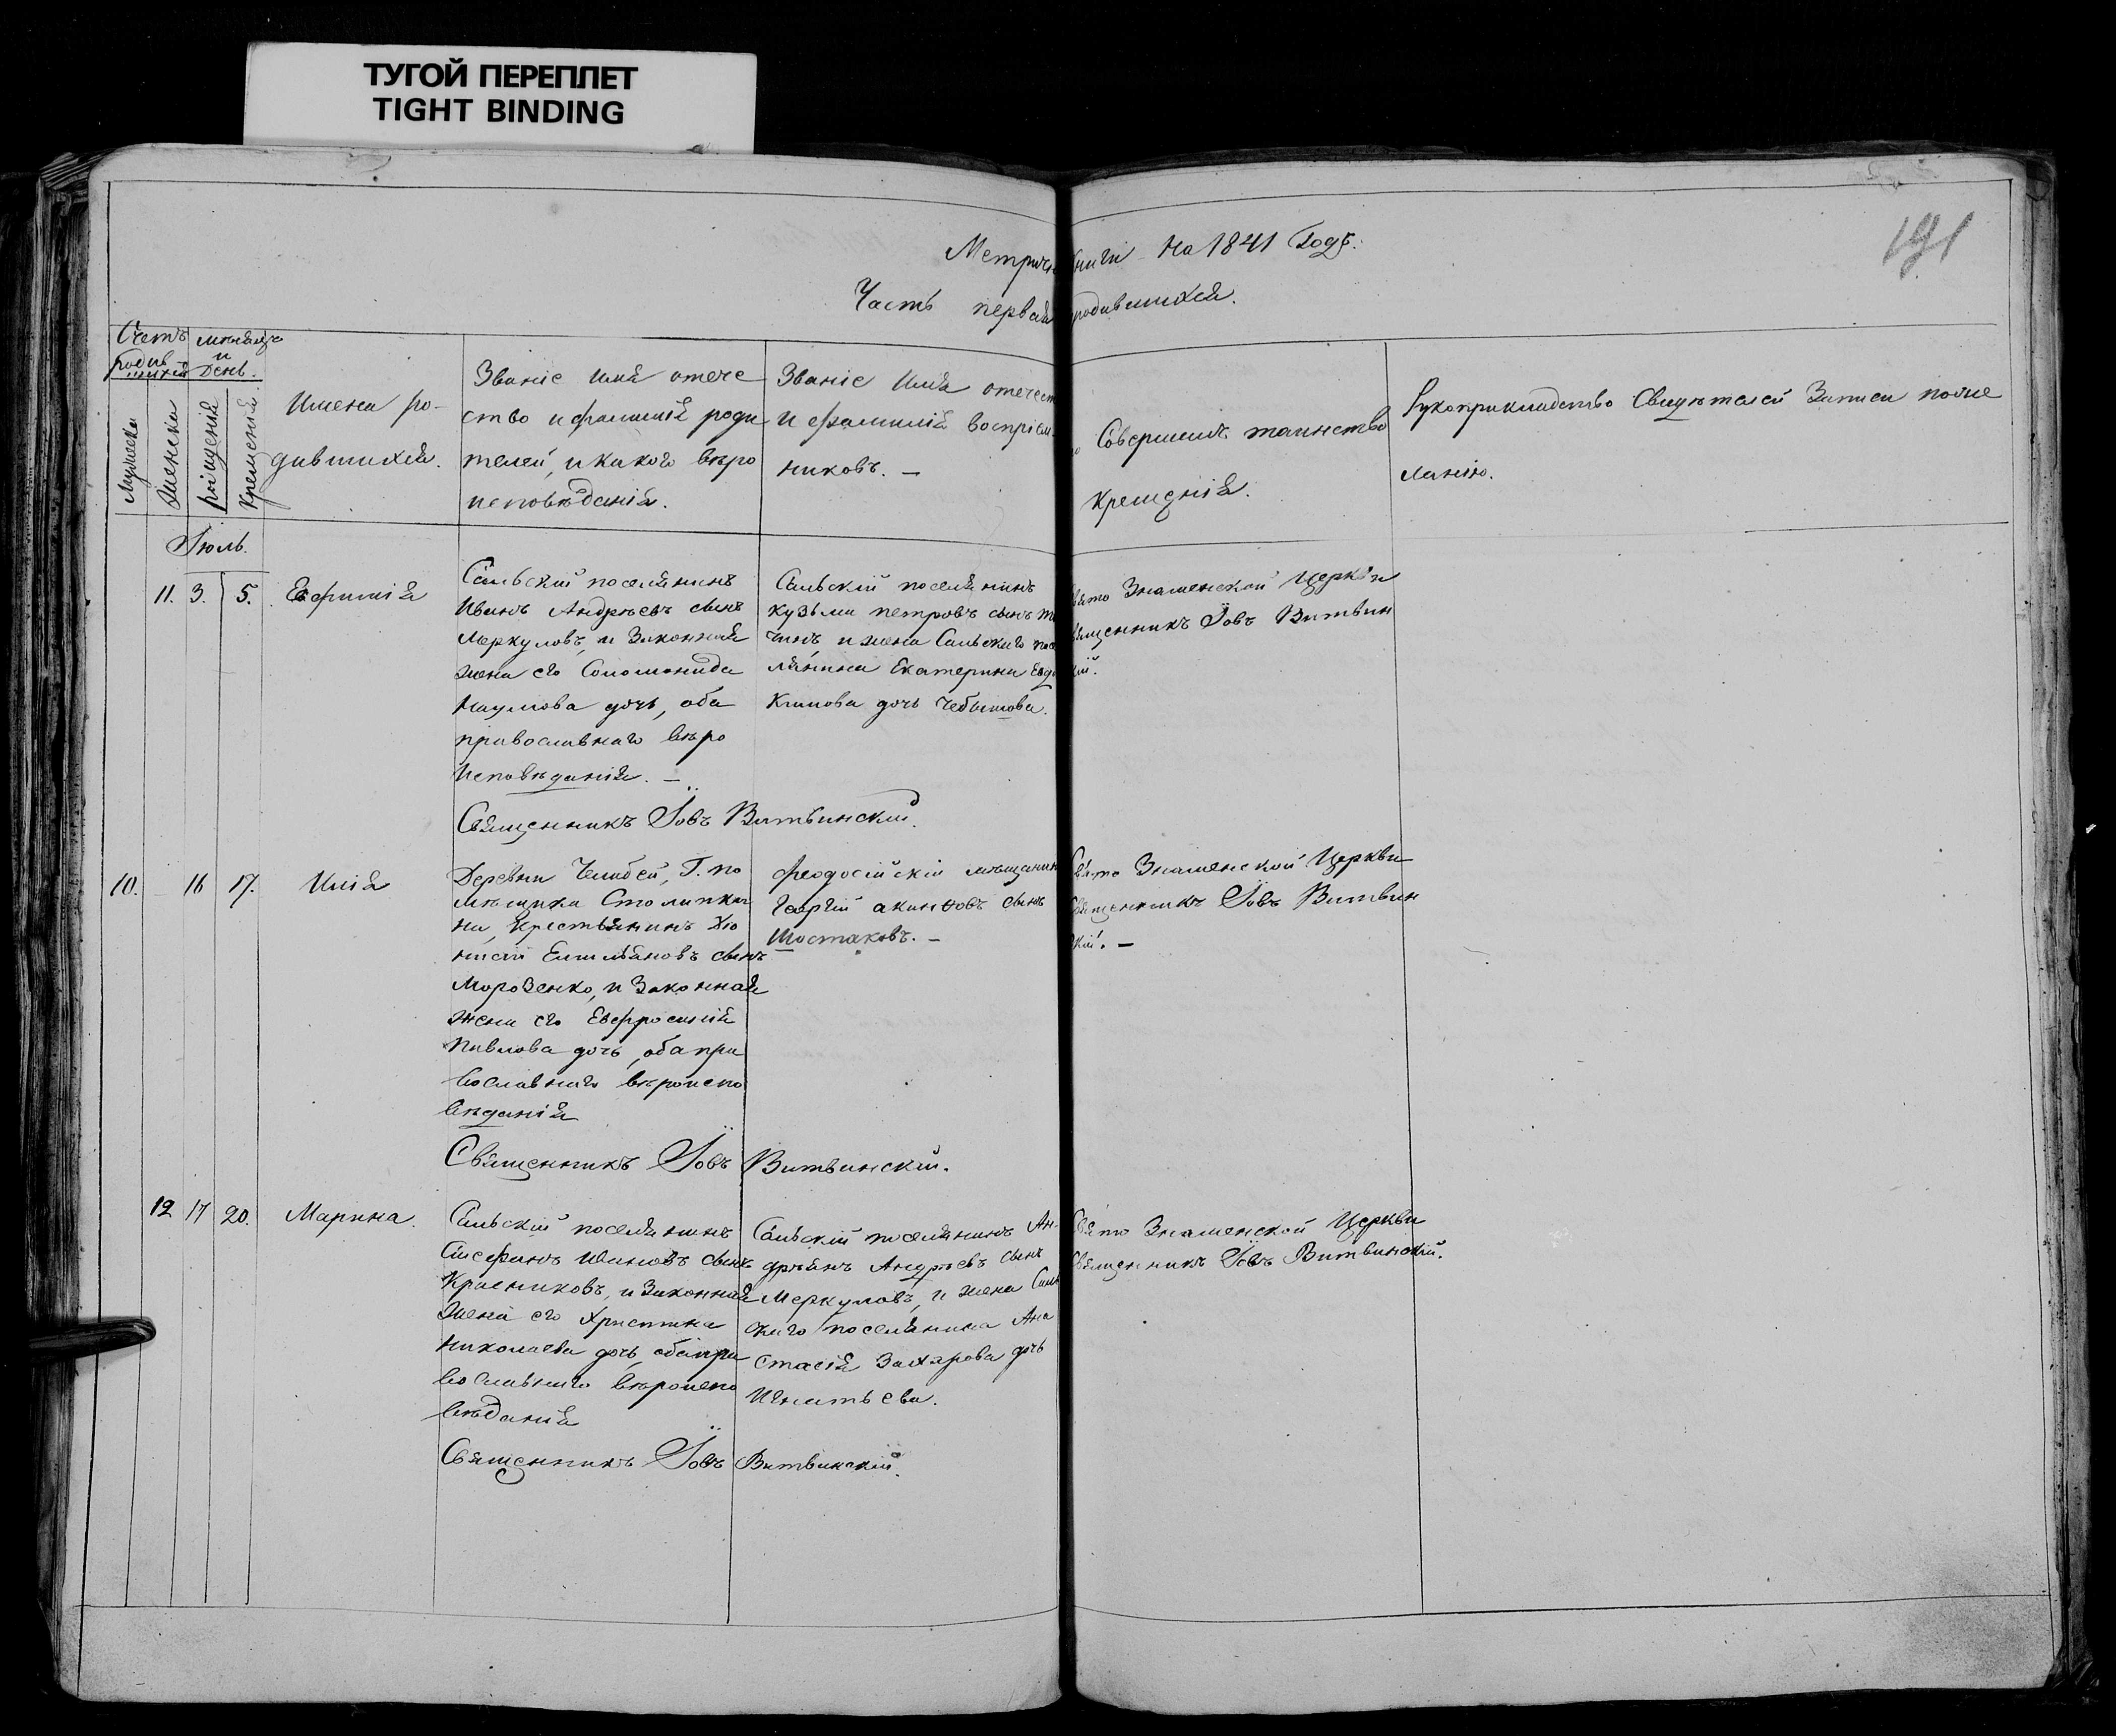 ТУГОЙ ПЕРЕПЛЕТ
TIGHT BINDING
191
Метриче книги На 1841 Годъ.
Часть первая родившихся.
Счетъ родившихся
Мужеска
Женска
мѣсяцъ и День.
рожденія
крещенія
Имена ро-
дившихся.
Званіе имя отече
ство и фамилія роди
телей, и какого вѣро
исповѣданія.
Званіе Имя отечест
И фамилія воспріем
никовъ. —
Совершилъ таинство
Крещенія.
Рукоприкладство Свидѣтелей Записи поже
ланію.
Іюль.
11. 3. 5. Евфимія
Сельскій поселянинъ
Иванъ Андреевъ сынъ
Меркуловъ, и Законная
жена его Соломонида
Наумова дочь, оба
православнаго вѣро
Исповѣданія. —
Сельскій поселянинъ
Кузьма петровъ сынъ
и жена Сельскаго посе
лянина Екатерина Евдо
кимова дочь Чебышова.
вято Знаменской Церкви
вященникъ Іовъ Витвин
кій.
Священникъ Іовъ Витвинскій.
10. 16 17. Илія
Деревни Челибей, Г. по
мѣщика Столипки
на, крестьянинъ Дıо
нисій Емильяновъ сынъ
Морозенко, и Законная
жена его Евфросинія
Павлова дочь, оба пра
вославнаго вѣроиспо
вѣданія
Феодосійскій мѣщанин
Георгій акимовъ сынъ
Шостаковъ. —
Свято Знаменской Церкви
Священникъ Іовъ Витвин
скій. —
Священникъ Іовъ Витвинскій.
12 17 20. Марина.
Сельскій поселянинъ
Ивановъ сынъ
Красниковъ, и Законная
жена его Христина
Николаева дочь, оба пра
вославнаго вѣроиспо
вѣданія
Сельскій поселянинъ Ан-
дреянъ Андреевъ сынъ
Меркуловъ, и жена Сель
скаго поселянина Ана
стасія Захарова дочь
Игнатьева.
Свято Знаменской Церкви
Священникъ Іовъ Витвинскій.
Священникъ Іовъ Витвинскій.